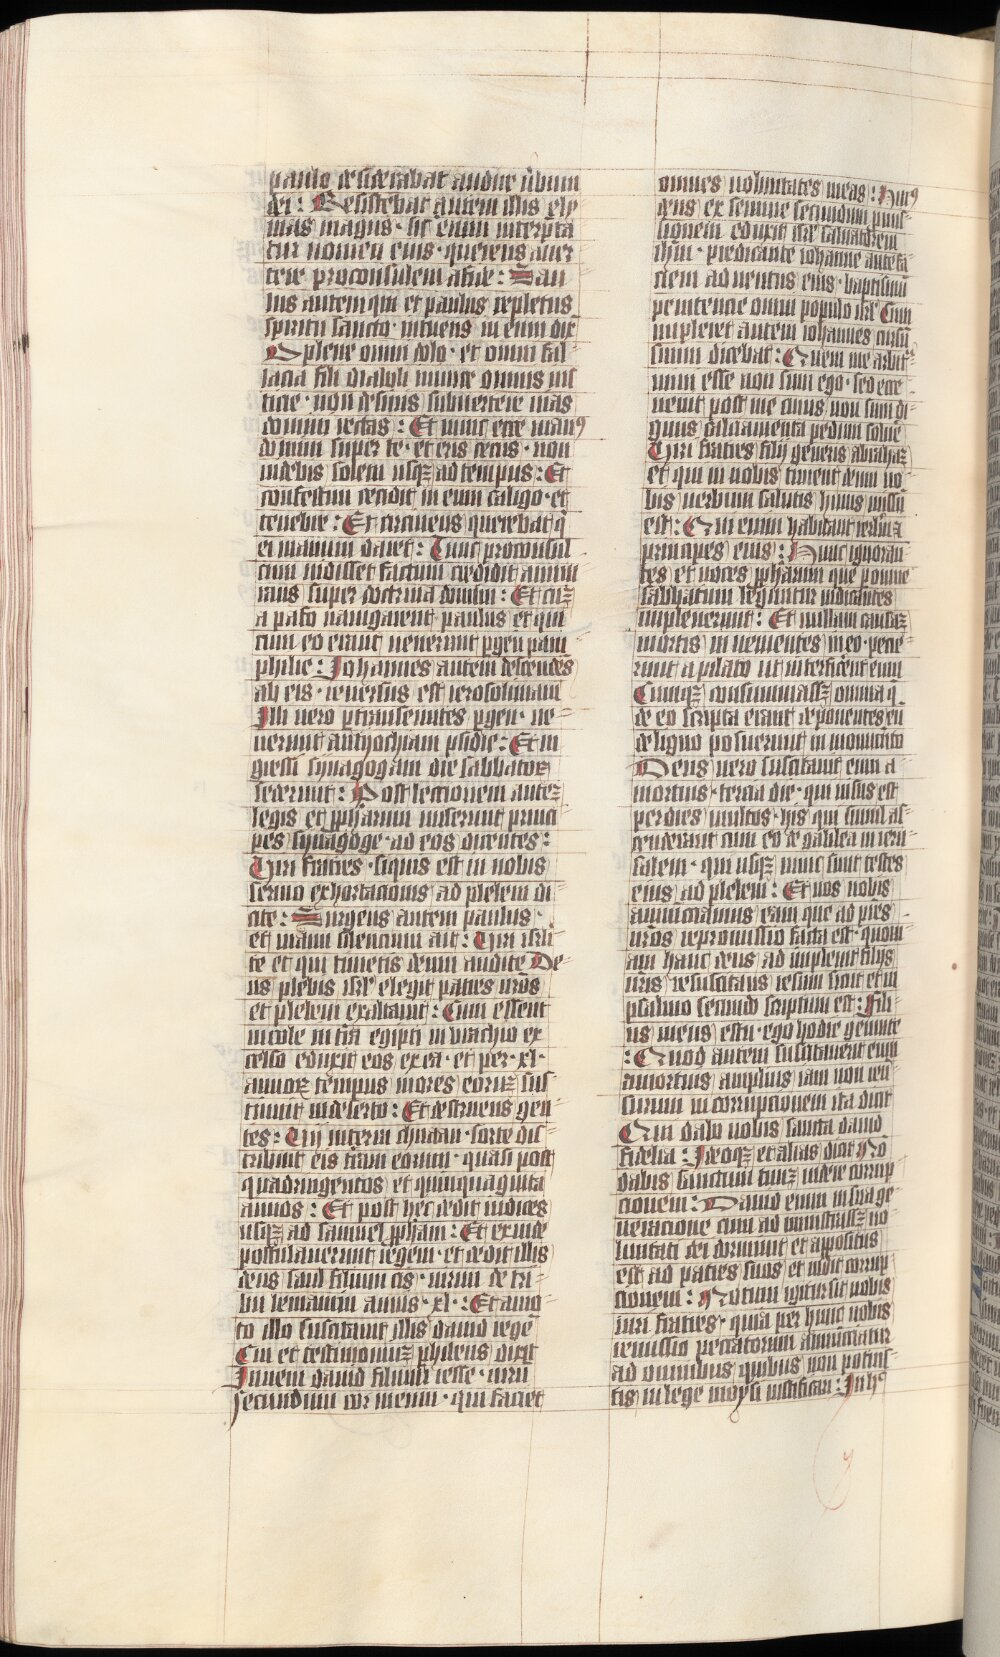 paulo desiderabat audire ūbum
dei : Resistebat autem illis ely
mas magus · sic enim interpta
tur nomen eius · querens auer
tere proconsulem afide : Sau
lus autem qui et paulus repletus
spiritu sancto · intuens in eum dix̄
O plene omni dolo · et omni fal
lacia fili diaboli inimice omnis ius
ticie · non desinis subuertere uias
domini rectas : Et nunc ecce manꝰ
domini super te · et eris cecus · non
uidens solem usqꝫ ad tempus : Et
confestim cecidit in eum caligo · et
tenebre : Et circuiens querebat q̄
ei manum daret : Tunc proconsul
cum uidisset factum credidit ammi
rans super doctrina domini : Et cuꝫ
a pafo nauigarent paulus et qui
cum eo erant uenerunt pgen pam
philie : Johannes autem descendēs
ab eis · reuersus est ierosolimam
Illi uero ptranseuntes pgen · ue
nerunt anthyochiam psidie : Et in
gressi synagogam die sabbatoꝝ
sederunt : Post lectionem auteꝫ
legis et ꝓphetarum miserunt princi
pes synagoge · ad eos dicentes :
Uiri fratres · siquis est in uobis
sermo exhortacionis ad plebem di
cite : Surgens autem paulus ·
et manu silencium ait : Uiri isrli
te et qui timetis deum audite De
us plebis isrl' elegit patres nr̄os
et plebem exaltauit : Cum essent
incole in tr̄a egipti in brachio ex
celso eduxit eos ex ea · et per · xl ·
annoꝝ tempus mores eoruꝫ sus
tinuit indeserto : Et destruens gen
tes : Uij in terra chanaan · sorte dis
tribuit eis terram eorum · quasi post
quadringentos et quinquaginta
annos : Et post hec dedit iudices
usqꝫ ad samuel ꝓpham : Et exinde
postulauerunt regem · et dedit illis
deus saul filium cis · uirum de tri
bu beniamin annis · xl · : Et amo
to illo suscitauit illis dauid regē
Cui et testimoniuꝫ phibens dixit
Inueni dauid filium iesse · uirū
secundum cor meum · qui faciet
omnes uoluntates meas : Huiꝰ
deus ex semine secundum pmis
sionem eduxit isrl' saluatorem
ihm̄ · predicante iohanne ante fa
ciem aduentus eius · baptismū
penitencie omni populo isrl' Cum
impleret autem iohannes cursū
suum dicebat : Quem me arbitra
mini esse non sum ego · sed ecce
uenit post me cuius non sum di
gnus calciamenta pedum soluē
Uiri fratres filij generis abrahaꝫ
et qui in uobis timent deum uo
bis uerbum salutis huius missū
est : Qui enim habitant ierlm̄ ⁊
principes eius : Hunc ignoran
tes et uoces ꝓpharum que p omne
sabbatum leguntur iudicantes
impleuerunt : Et nullam causaꝫ
mortis inuenientes in eo · pecie
runt a pilato ut interficerent eum
Cumqꝫ consummassꝫ omnia q̄
de eo scripta erant deponentes eū
deligno posuerunt in monumēto
Deus uero suscitauit eum a
mortuis · tercia die · qui uisus est
perdies multos · his qui simul as
cenderant cum eo de galilea in ieru
salem · qui usqꝫ nunc sunt testes
eius ad plebem : Et nos uobis
annunciamus eam que ad pr̄es
nr̄os repromissio facta est · quoni
am hanc deus ad impleuit filijs
nr̄is resuscitans iesum sicut et in
psalmo secundo scriptum est : Fili
us meus es tu · ego hodie genui te
: Quod autem suscitauerit eum
amortuis amplius iam non reu
surum in corrupcionem ita dicit
Quia dabo uobis sancta dauid
fidelia : Ideoqꝫ et alias dicit Nō
dabis sanctum tuuꝫ uidere corrup
cionem : Dauid enim in sua ge
neracione cum administrassꝫ uo
luntati dei dormiuit et appositus
est ad patres suos et uidit corrup
cionem : Notum igitur sit uobis
uiri fratres · quia per hunc uobis
remissio peccatorum annunciatur
ad omnibus quibus non potuis
tis in lege moysi iustificari : In hꝰ